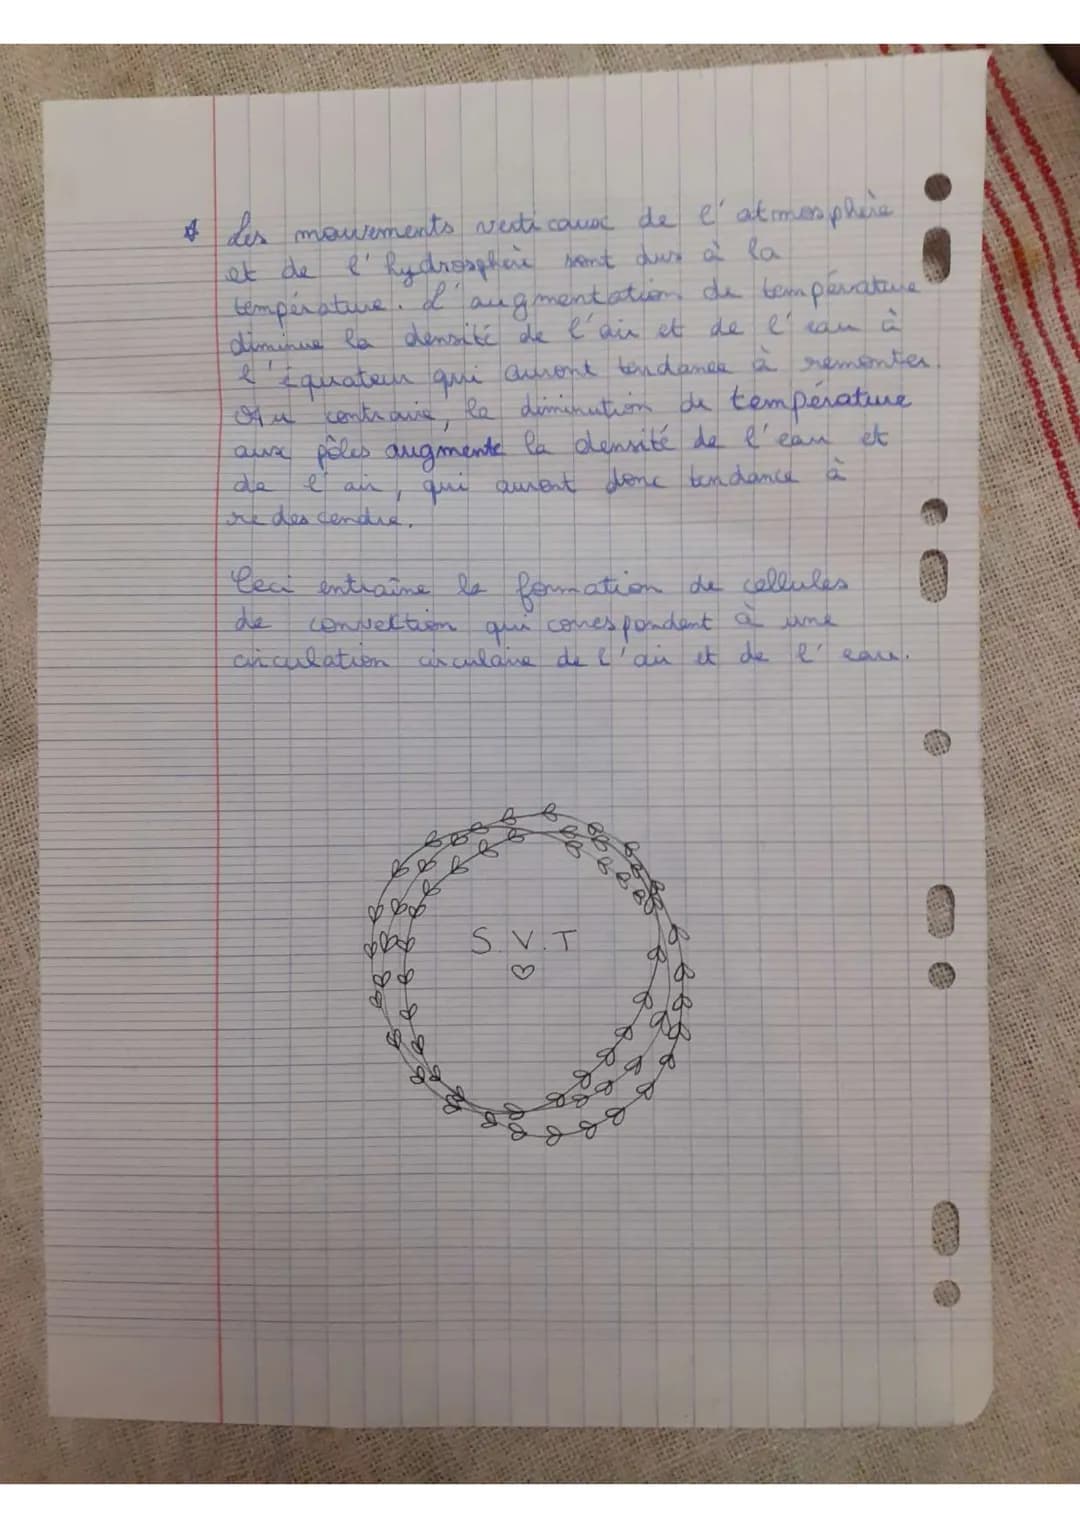 Les mouvements verticaux de l'atmosphère
et de l'hydrosphère sont dus à la
température. L'augmentation de température
diminue la densité de l'air et de l'eau à
l'équateur qui auront tendance à remonter.
Au contraire, la diminution de température
aux pôles augmente la densité de l'eau et
de l'air, qui auront donc tendance à
redescendre.
Ceci entraîne la formation de cellules
de convection qui correspondent à une
circulation circulaire de l'air et de l'eau.
S.V.T